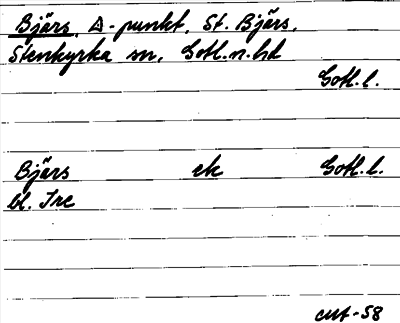 Bjärs, △-punkt, St. Bjärs,
Stenkyrka sn, Gotl.n.hd
Gotl.l.
Bjärs ek Gotl.l.
bl. Tre
-58